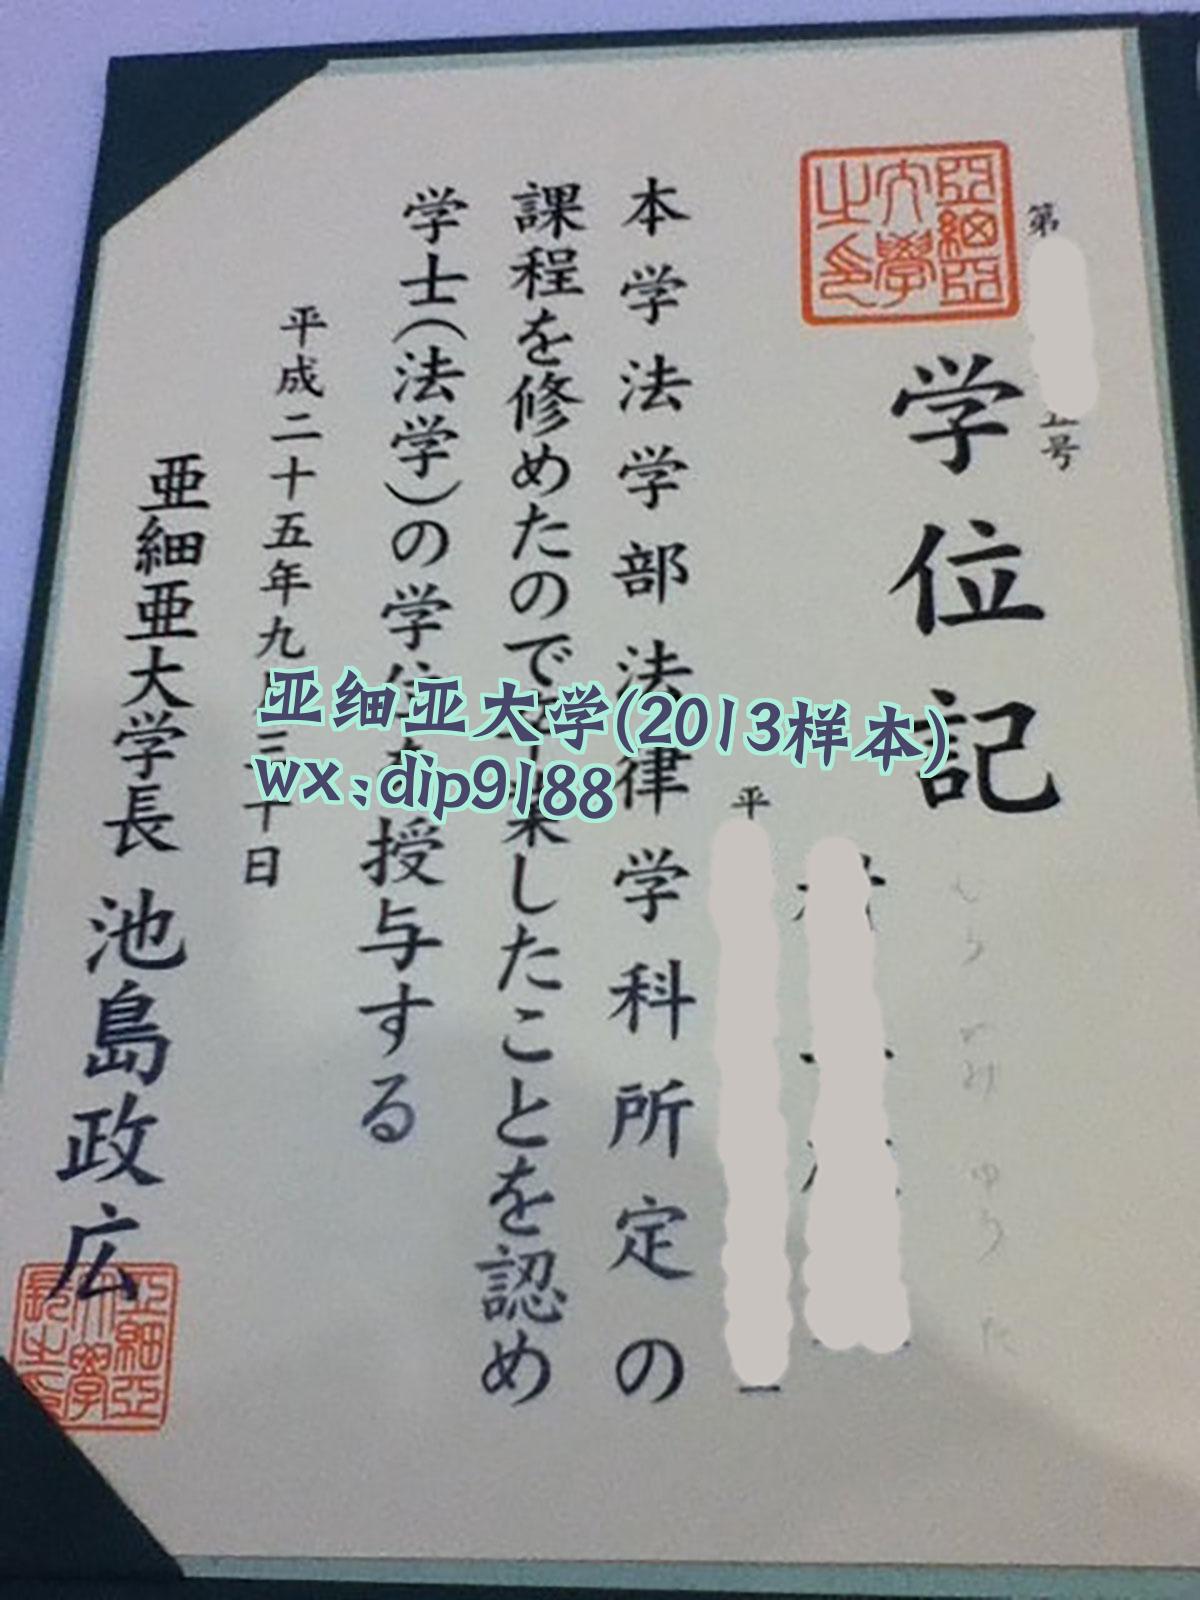 第
号
亞細亞
大學
之印
学位記
平
本学法学部法律学科所定の
課程を修めたので卒業したことを認め
学士(法学)の学位を授与する
平成二十五年九月三十日
亜細亜大学長 池島政広
亞細亞
大學
長之印
亚细亚大学(2013样本)
wx:dip9188